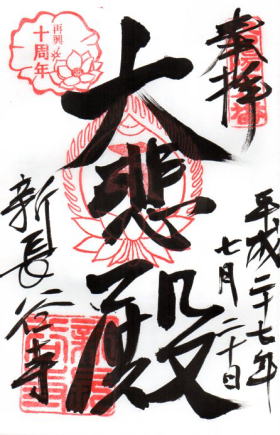 奉拝
平成二十七年
七月二十日
大悲殿
再興
十周年
新長谷寺